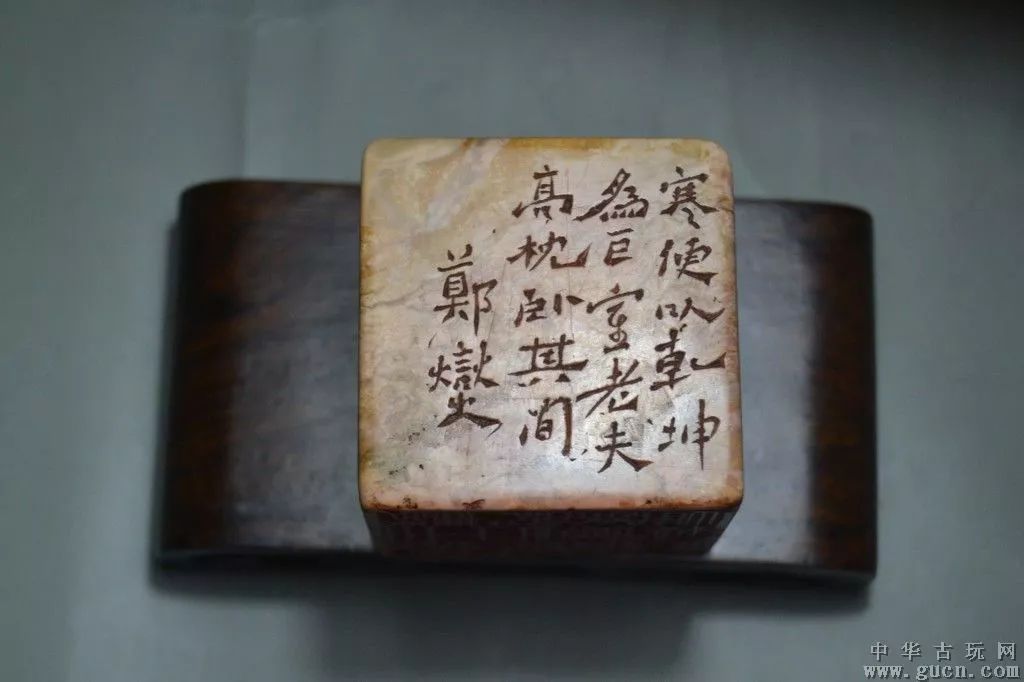 寒便以乾坤
為巨室老夫
高枕卧其間
鄭燮
中华古玩网
www.gucn.com